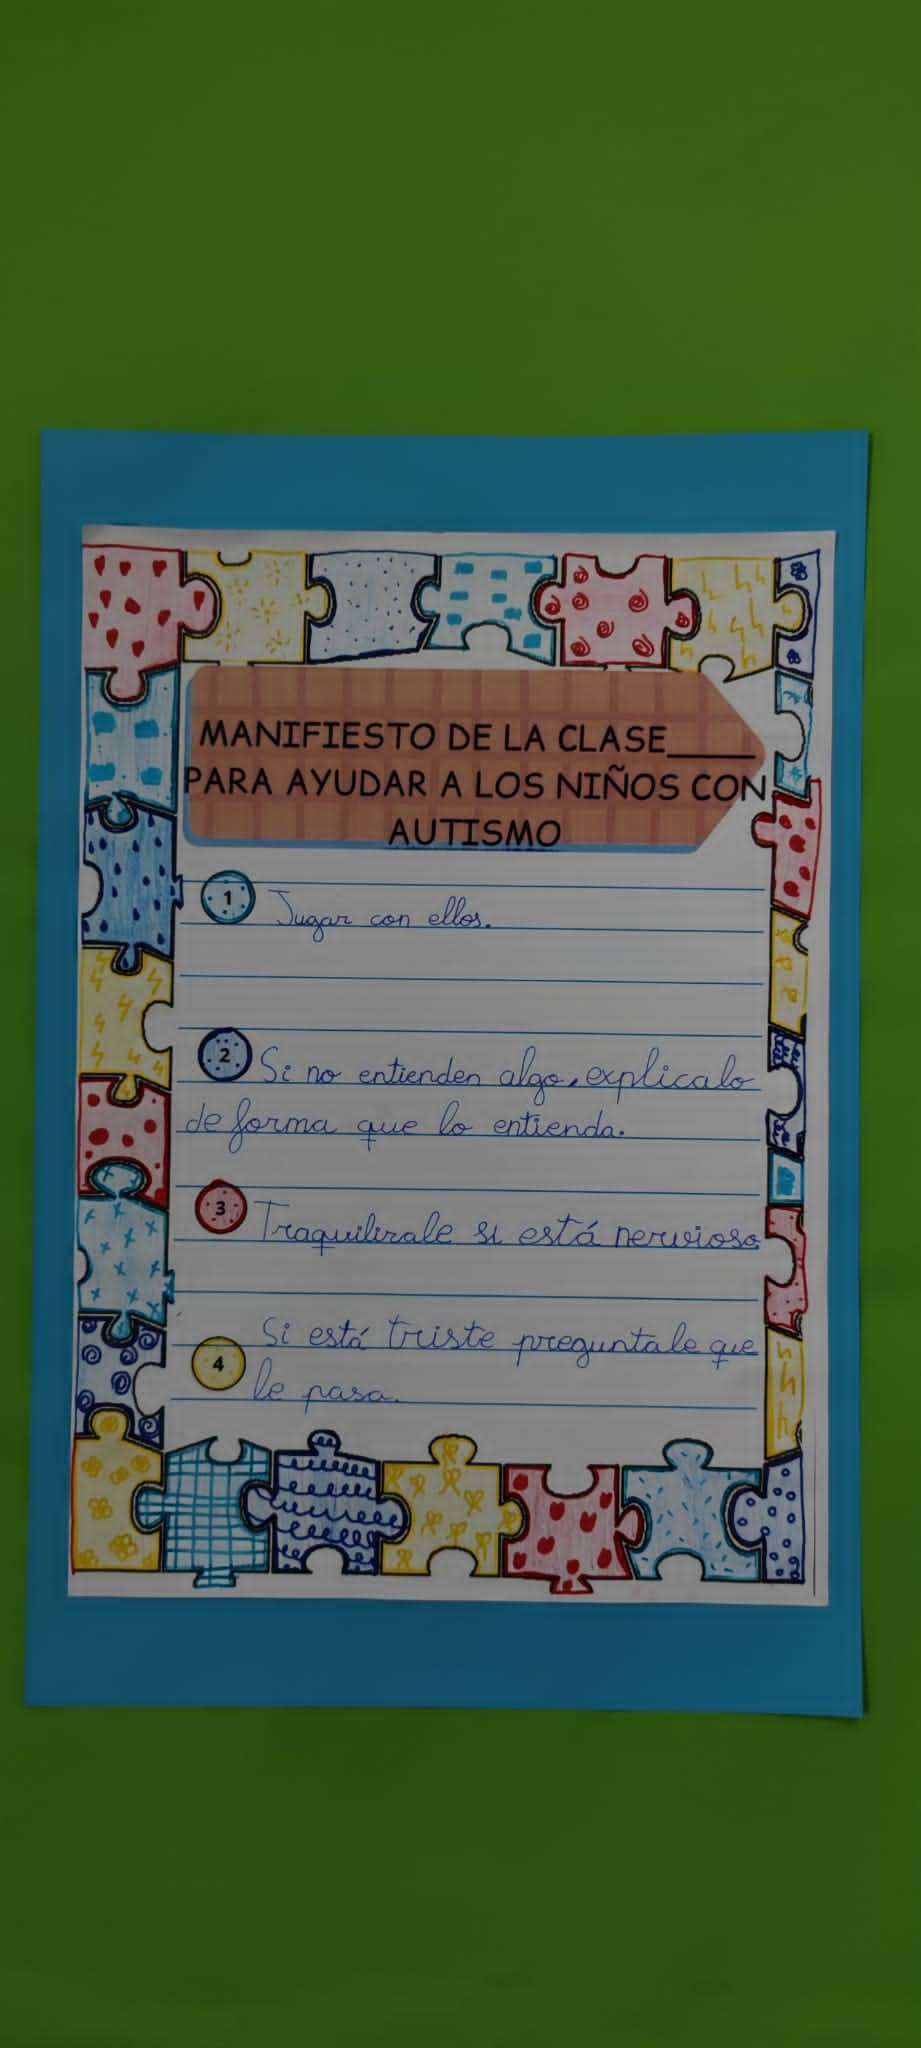 MANIFIESTO DE LA CLASE____
PARA AYUDAR A LOS NIÑOS CON
AUTISMO
1 Jugar con ellos.
2 Si no entienden algo, explicalo
de forma que lo entienda.
3 Traquilizale si está nervioso.
Si está triste preguntale que
4 le pasa.